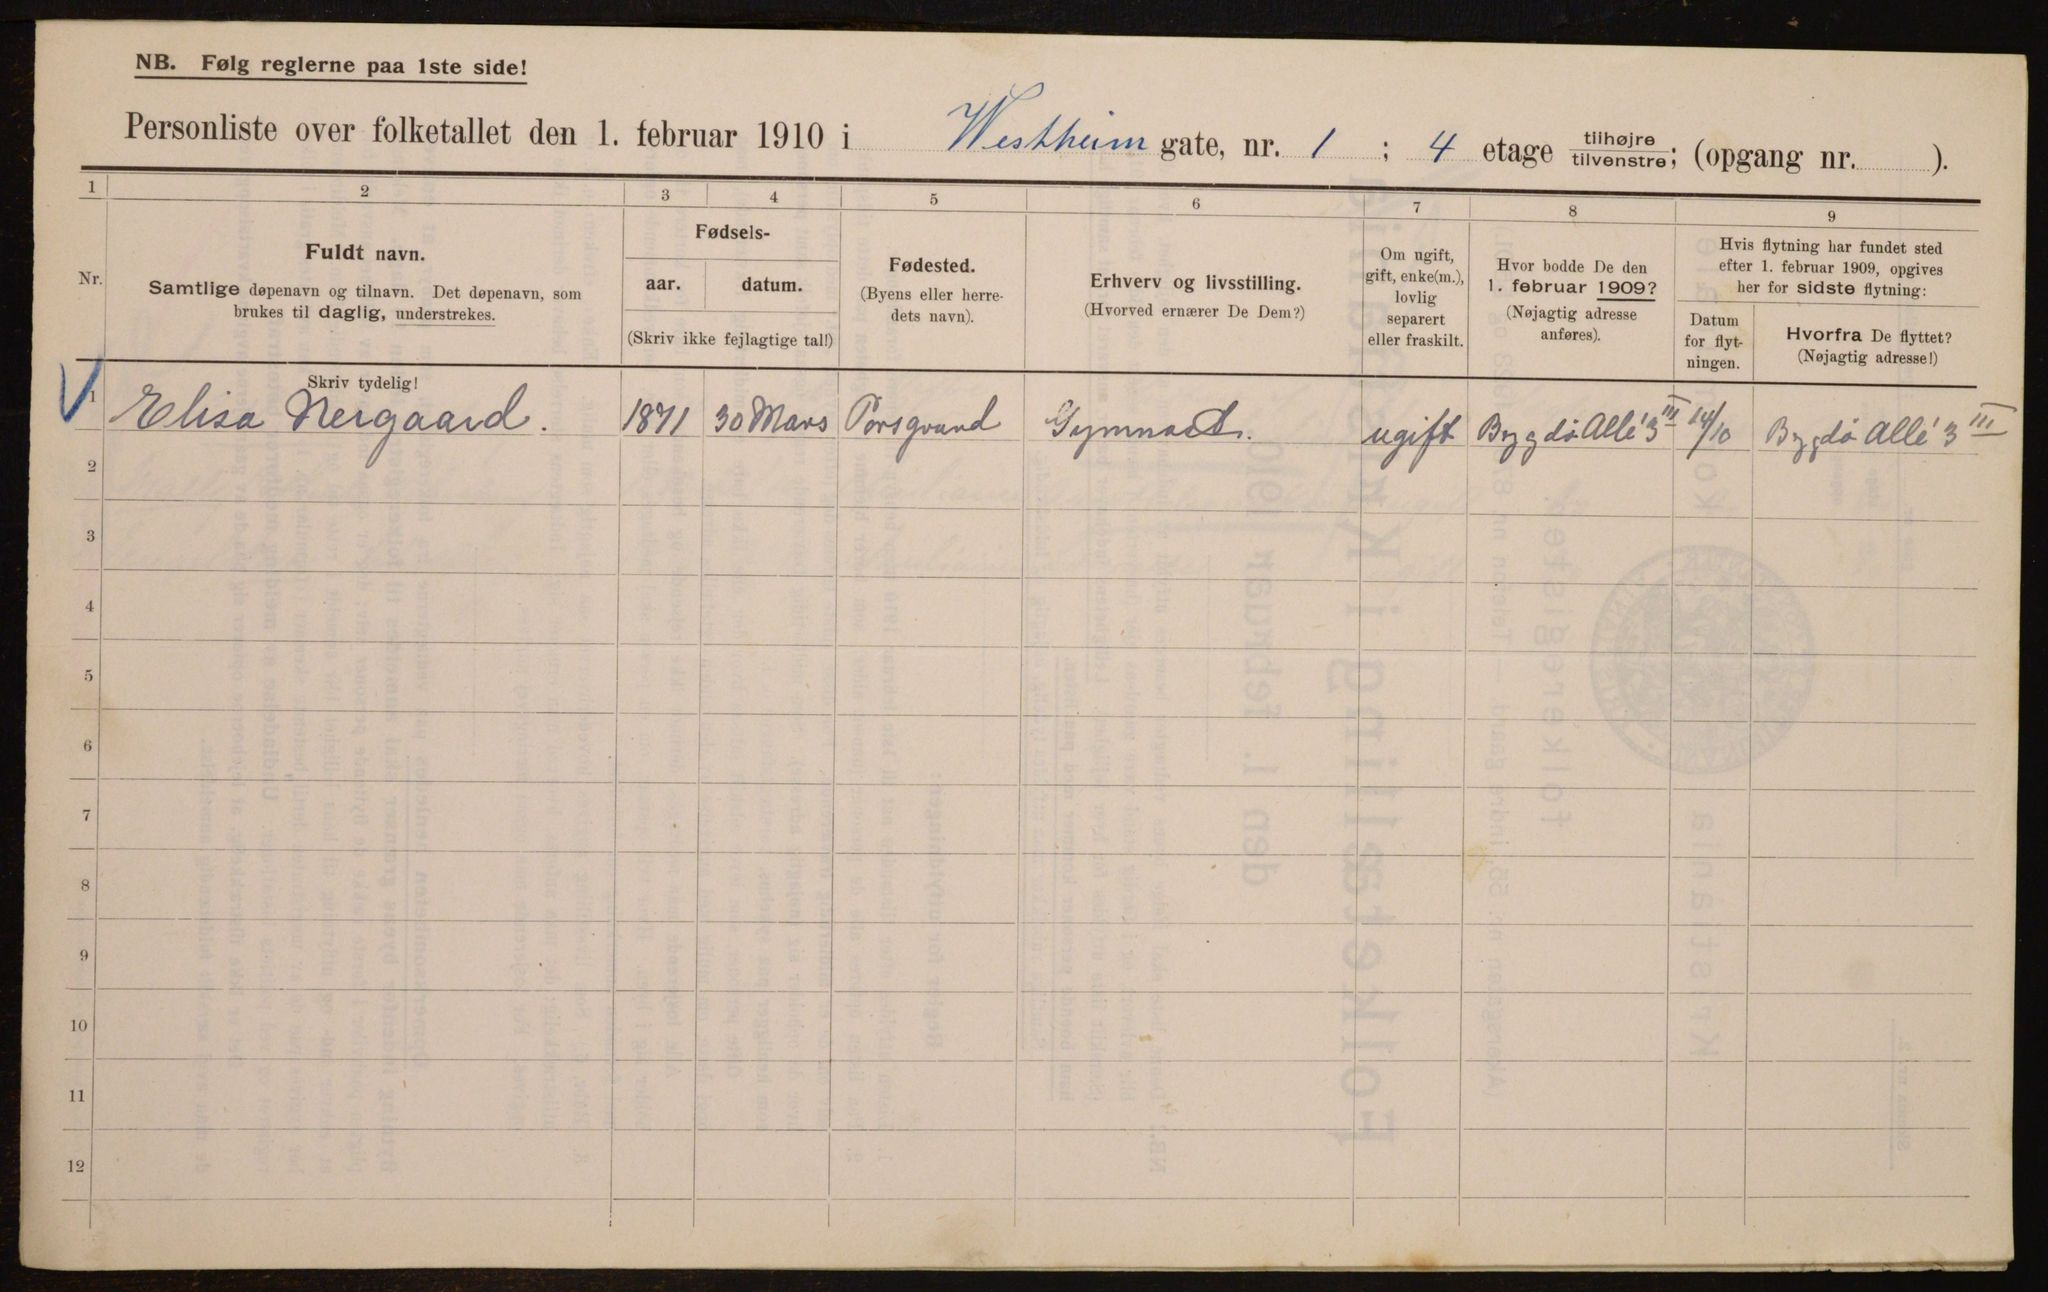 NB. Følg reglerne paa 1ste side!
Personliste over folketallet den 1. februar 1910 i Westheim gate, nr. 1 ; 4 etage tilhøjre tilvenstre; (opgang nr. ).
1 2 3 4 5 6 7 8 9
Nr.
Fuldt navn.
Samtlige døpenavn og tilnavn. Det døpenavn, som
brukes til daglig, understrekes.
Skriv tydelig!
Fødsels-
aar. datum.
(Skriv ikke fejlagtige tal!)
Fødested.
(Byens eller herre-
dets navn).
Erhverv og livsstilling.
(Hvorved ernærer De Dem?)
Om ugift,
gift, enke(m.),
lovlig
separert
eller fraskilt.
Hvor bodde De den
1. februar 1909?
(Nøjagtig adresse
anføres).
Hvis flytning har fundet sted
efter 1. februar 1909, opgives
her for sidste flytning:
Datum
for flyt-
ningen.
Hvorfra De flyttet?
(Nøjagtig adresse!)
1 Elisa Nergaard. 1871 30 Mars Porsgrund Gymnast. ugift Bygdö Allé 3 III 14/10 Bygdö Allé 3 III
2
3
4
5
6
7
8
9
10
11
12